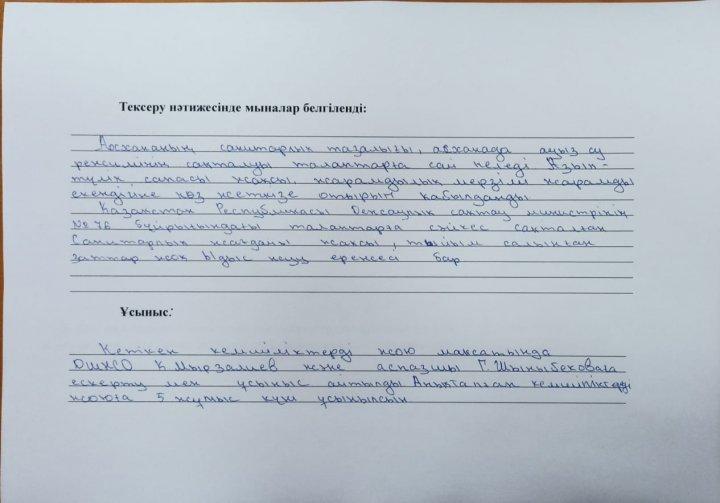 Тексеру нәтижесінде мыналар белгіленді:
Асхананың санитарлық тазалығы, асханада ауыз су
режимінің сақталуы талаптарға сай келеді. Азық-
түлік сапасы жақсы, жарамдылық мерзімі жарамды
екендігіне көз жеткізе отырып қабылданды
Қазақстан Республикасы Денсаулық сақтау министрінің
№ 76 бұйрығындағы талаптарға сәйкес сақталған
Санитарлық жағдайы жақсы, тыйым салынған
заттар жоқ Ыдыс жуу ережесі бар
Ұсыныс:
Кеткен кемшіліктерді жою мақсатында
ДШЖО К.Мырзалиев және аспазшы Г.Шыныбековаға
ескерту мен ұсыныс айтылды Анықталған кемшіліктерді
жоюға 5 жұмыс күні ұсынылсын